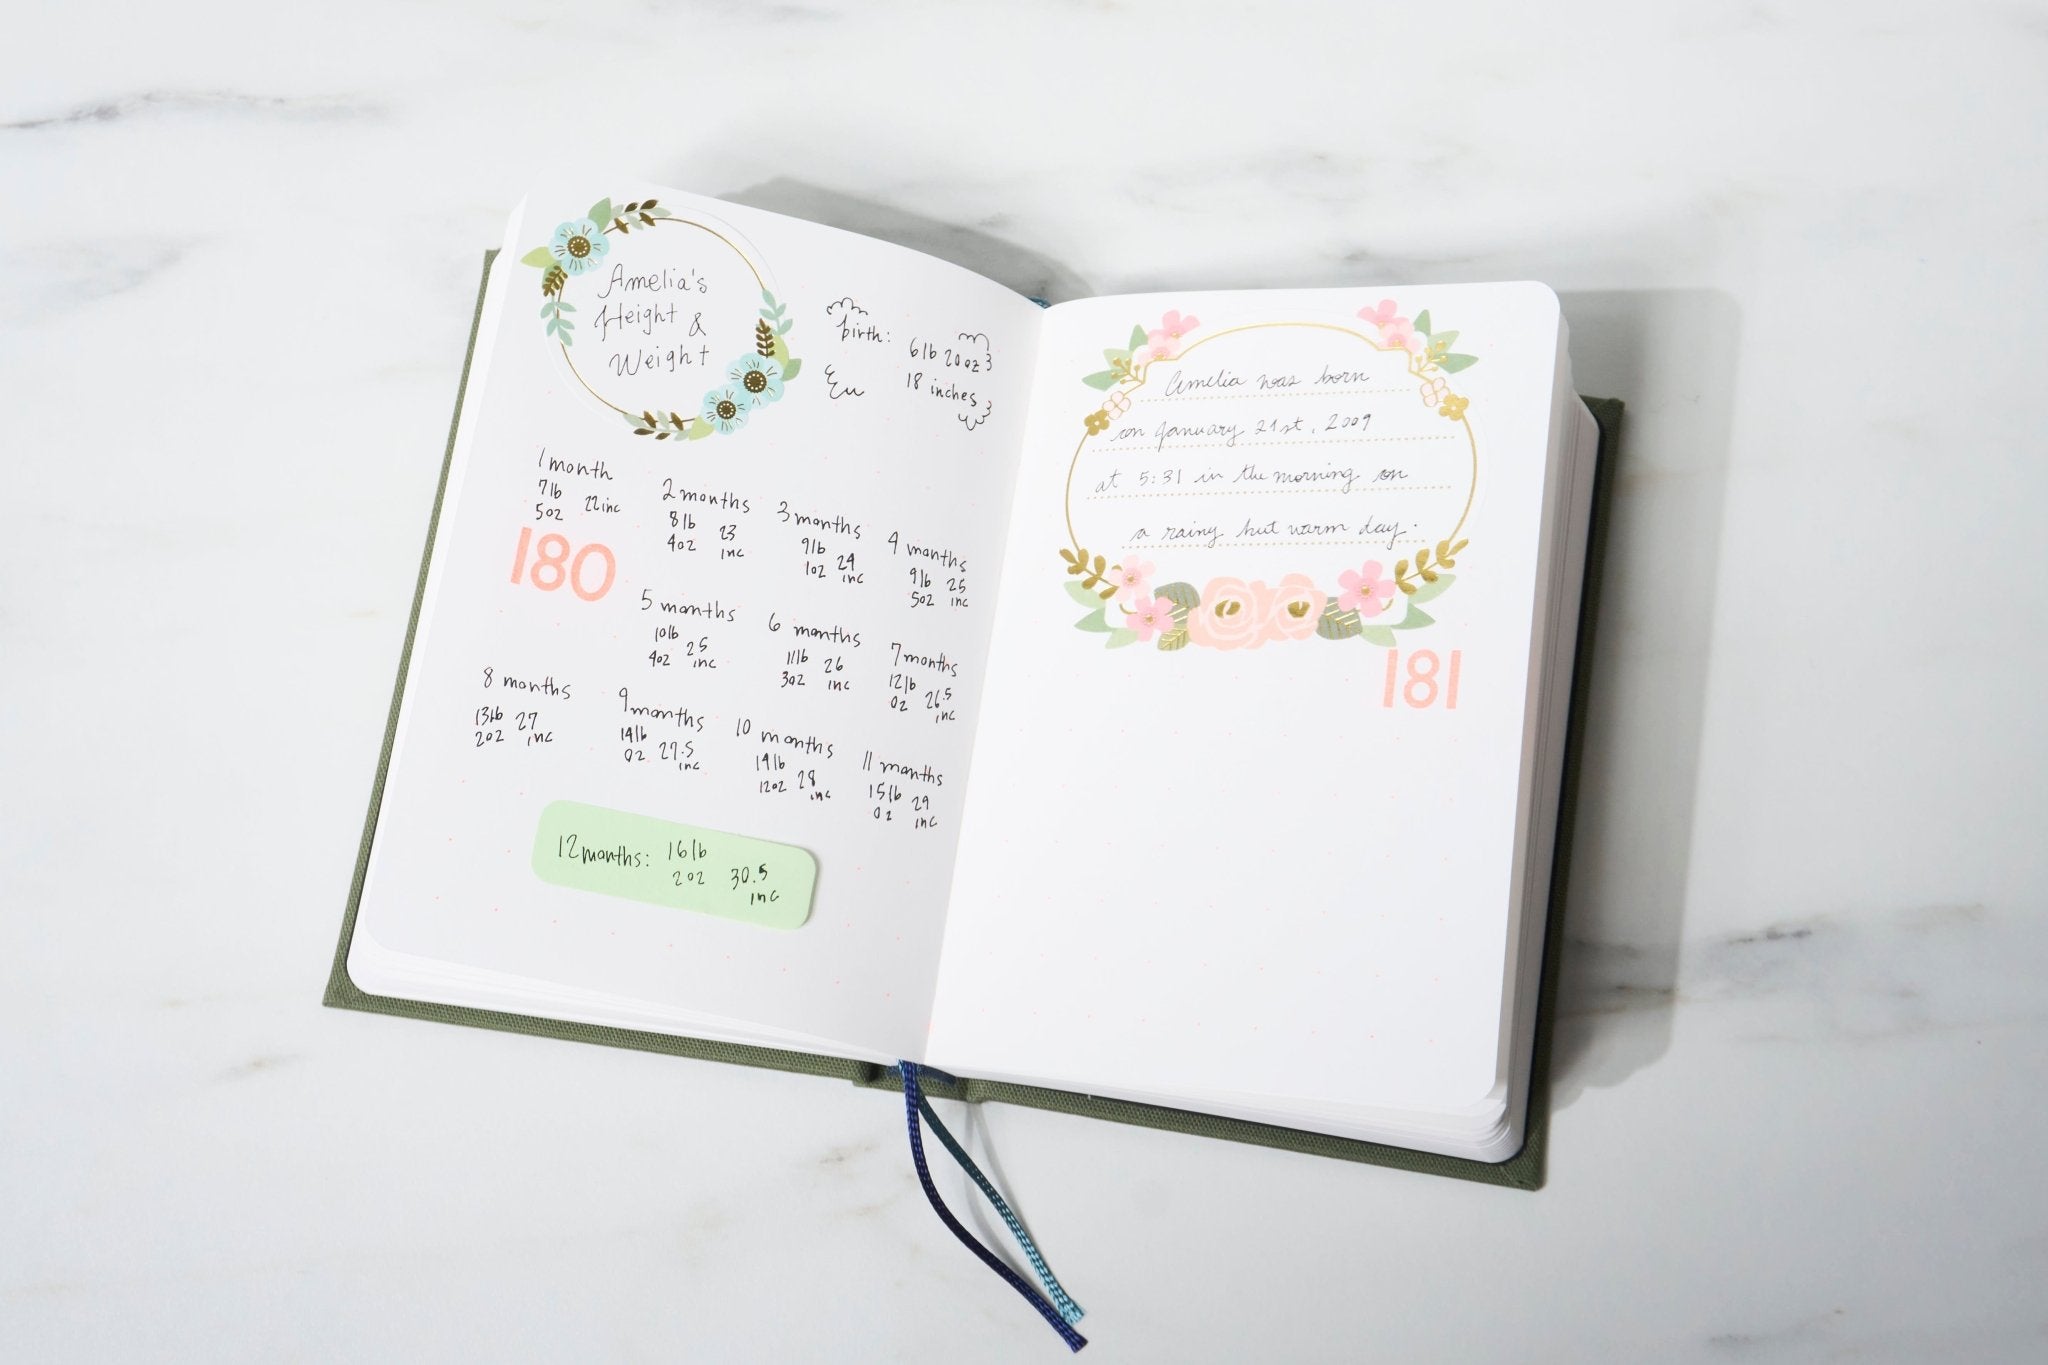 Amelia's
Height &
Weight
birth: 6lb 20oz
18 inches
1 month
7lb 22inc
5oz
180
2 months
8lb 23
4oz inc
3 months
9lb 24
1oz inc
4 months
9lb 25
5oz inc
5 months
10lb 25
4oz inc
6 months
11lb 26
3oz inc
7 months
12lb 26.5
0z inc
8 months
13lb 27
2oz inc
9 months
14lb 27.5
0z inc
10 months
14lb 28
12oz inc
11 months
15lb 29
0z inc
12 months: 16lb 30.5
2oz inc
Amelia was born
on January 21st, 2009
at 5:31 in the morning on
a rainy but warm day.
181